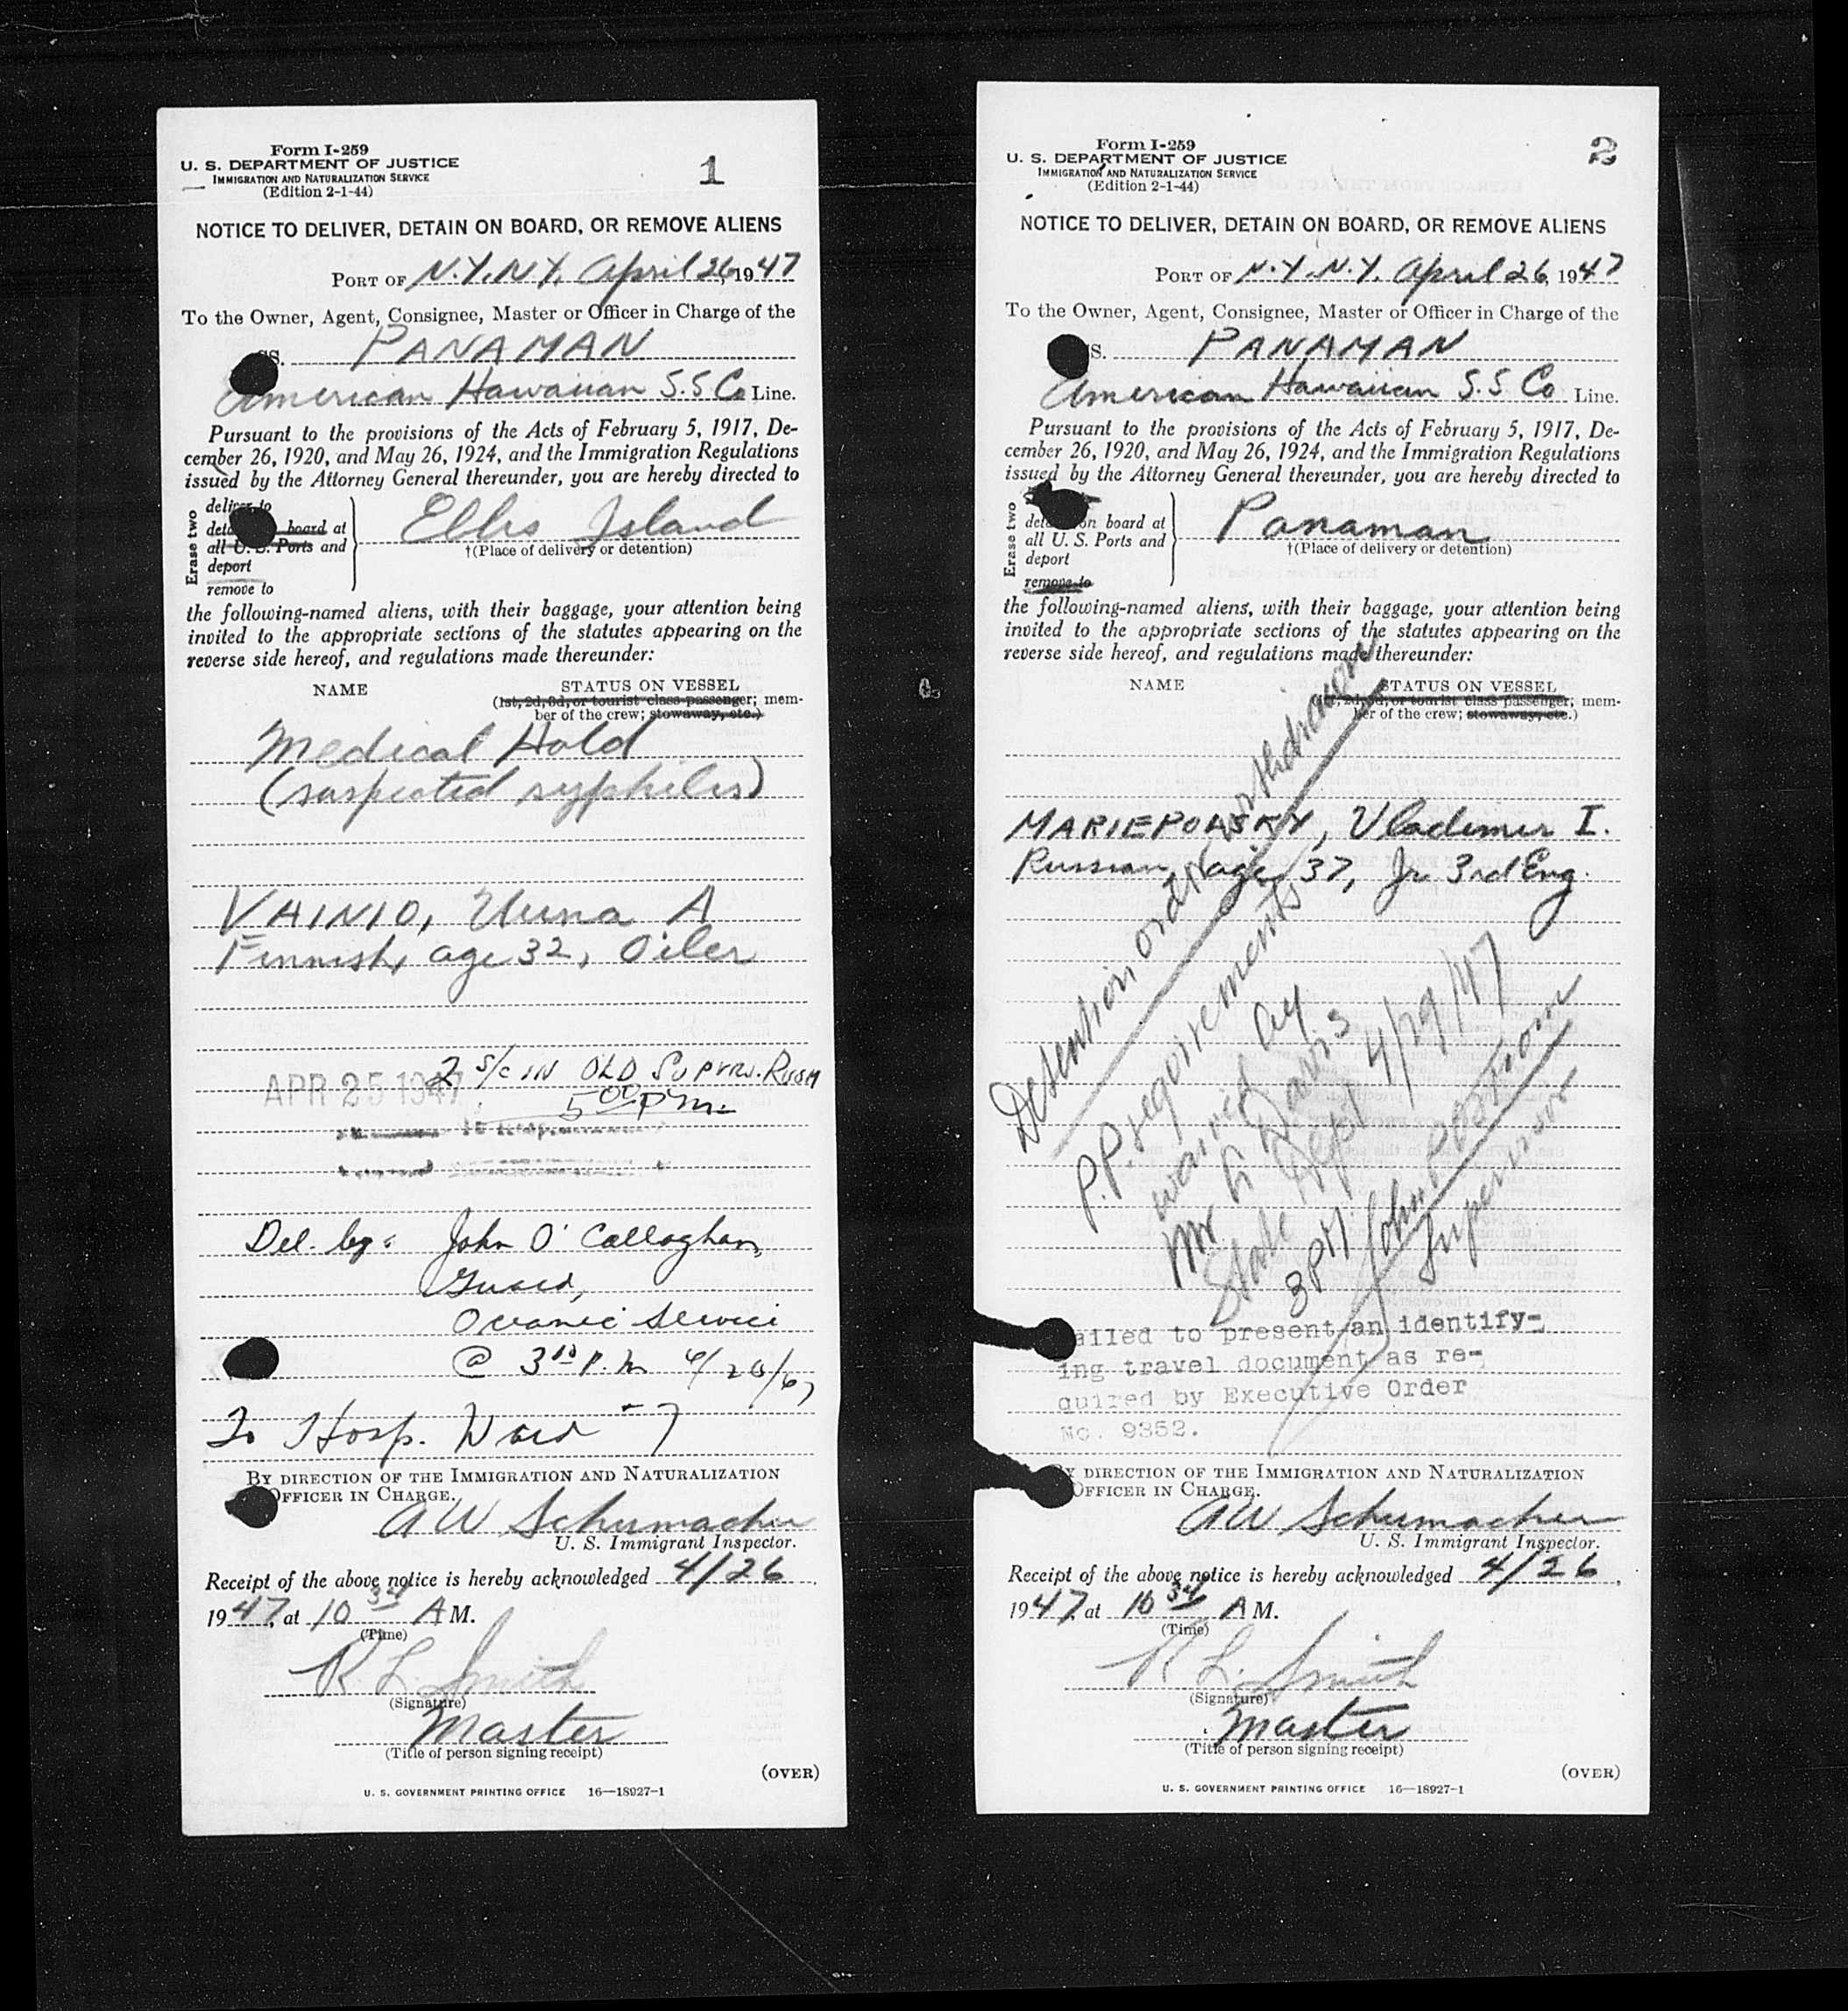 Form I-259
U. S. DEPARTMENT OF JUSTICE
IMMIGRATION AND NATURALIZATION SERVICE
(Edition 2-1-44)
1
NOTICE TO DELIVER, DETAIN ON BOARD, OR REMOVE ALIENS
PORT OF N.Y. N.Y. April 26, 1947
To the Owner, Agent, Consignee, Master or Officer in Charge of the
SS. PANAMAN
American Hawaiian S.S Co Line.
Pursuant to the provisions of the Acts of February 5, 1917, De-
cember 26, 1920, and May 26, 1924, and the Immigration Regulations
issued by the Attorney General thereunder, you are hereby directed to
Erase two
deliver to
board at
all U. S. Ports and
deport
remove to
Ellis Island
†(Place of delivery or detention)
the following-named aliens, with their baggage, your attention being
invited to the appropriate sections of the statutes appearing on the
reverse side hereof, and regulations made thereunder:
NAME
STATUS ON VESSEL
(1st, 2d, 3d, or tourist class passenger; mem-
ber of the crew; stowaway, etc.)
Medical Hold
(suspected syphilis)
VAINIO, A
Finnish, age 32, Oiler
APR 25 1947
2 S/C IN OLD SUPVRS. ROOM
5 00 P.M.
Del. by: John O'Callaghan,
Guard,
Oceanic Service
@ 3 P.M
To Hosp. Ward - 7
BY DIRECTION OF THE IMMIGRATION AND NATURALIZATION
OFFICER IN CHARGE.
AW Schumacher
U. S. Immigrant Inspector.
Receipt of the above notice is hereby acknowledged 4/26,
1947, at 10 34 A M.
(Time)
R L. Smith
(Signature)
Master
(Title of person signing receipt)
(OVER)
U. S. GOVERNMENT PRINTING OFFICE 16—18927-1
Form I-259
U. S. DEPARTMENT OF JUSTICE
IMMIGRATION AND NATURALIZATION SERVICE
(Edition 2-1-44)
2
NOTICE TO DELIVER, DETAIN ON BOARD, OR REMOVE ALIENS
PORT OF N.Y. N.Y. April 26, 1947
To the Owner, Agent, Consignee, Master or Officer in Charge of the
S. PANAMAN
American Hawaiian S.S Co Line.
Pursuant to the provisions of the Acts of February 5, 1917, De-
cember 26, 1920, and May 26, 1924, and the Immigration Regulations
issued by the Attorney General thereunder, you are hereby directed to
Erase two
on board at
all U. S. Ports and
deport
remove to
Panaman
†(Place of delivery or detention)
the following-named aliens, with their baggage, your attention being
invited to the appropriate sections of the statutes appearing on the
reverse side hereof, and regulations made thereunder:
NAME
STATUS ON VESSEL
(1st, 2d, 3d, or tourist class passenger; mem-
ber of the crew; stowaway, etc.)
MARIEPOLSKY, Vladimer I.
Russian, age 37, Jr. 3rd Eng.
Detention order withdrawn
P.P. requirements
waived by
Mr. Davis
State Dept 4/29/47
3 PM John
Supervisor
ailed to present an identify-
ing travel document as re-
quired by Executive Order
No. 9352.
BY DIRECTION OF THE IMMIGRATION AND NATURALIZATION
OFFICER IN CHARGE.
AW Schumacher
U. S. Immigrant Inspector.
Receipt of the above notice is hereby acknowledged 4/26,
1947, at 10 34 A M.
(Time)
R L. Smith
(Signature)
Master
(Title of person signing receipt)
(OVER)
U. S. GOVERNMENT PRINTING OFFICE 16—18927-1